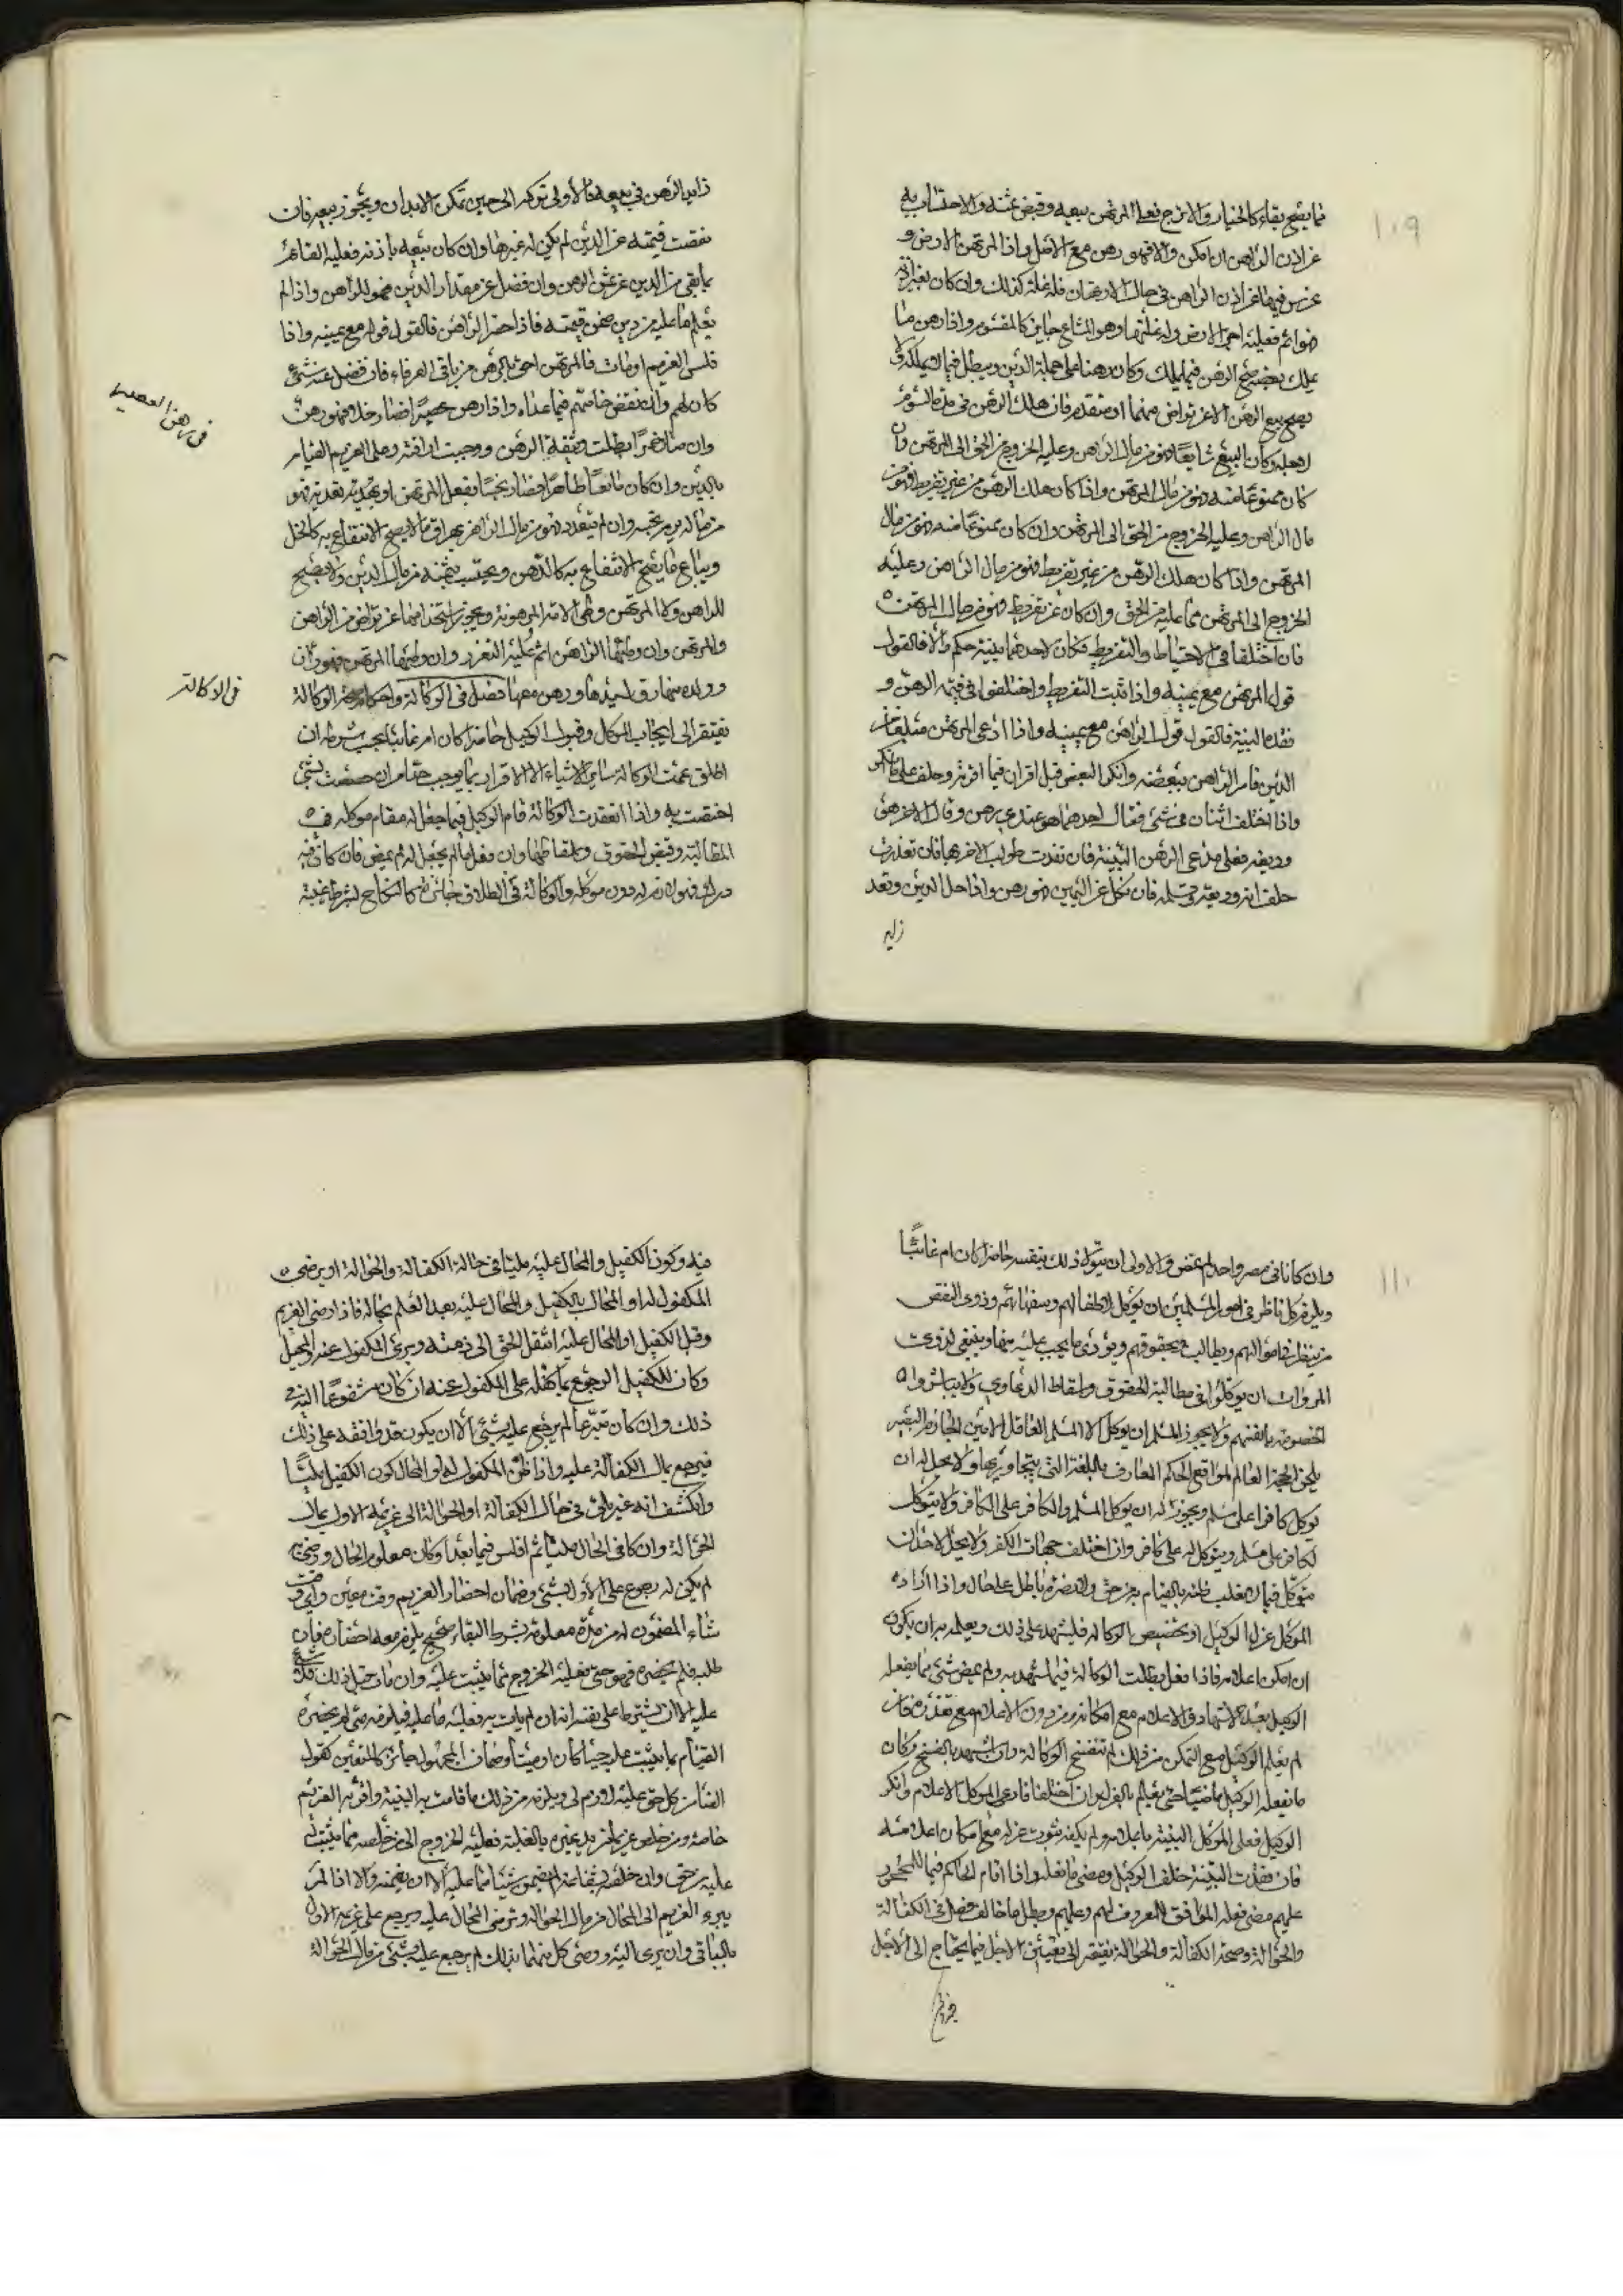 ١٠٩
فما يصح بقاءه كالخيار والاترج فعلى المرتهن بيعه وقبض ثمنه والاحتساب به
عن اذن الراهن ان امكن والا فهو رهن مع الاصل واذا المرتهن الارض و
غرس فيها عن اذن الراهن في حال الارتهان فله غلة كذلك وان كان بغير اذنه
فعليه اجرة الارض وله غلتها ورهن المشاع جايز كالمقسوم واذا رهن ما
يملك بعضه صح الرهن فيما يملك وكان رهنا على جملة الدين وبطل فيما لا يملكه ولا
يصح بيع الرهن الا عن تراض منهما او متقدم فان هلك الرهن في مدة السوم
وكان البيع شايعا فهو من مال الراهن وعليه الخروج من الحق الى المرتهن وان
كان ممنوعا منه فهو من مال المرتهن واذا كان هلك الرهن من غير تفريط فهو من
مال الراهن وعليه الخروج من الحق الى المرتهن وان كان ممنوعا منه فهو من مال
المرتهن واذا كان هلك الرهن من غير تفريط فهو من مال الراهن وعليه
الخروج الى المرتهن مما عليه من الحق وان كان عن تفريط فهو من مال المرتهن
فان اختلفا في الاحتياط والتفريط فكان لاحدهما بينة حكم والا فالقول
قول المرتهن مع يمينه واذا ثبت التفريط واختلفوا في قيمة الرهن و
فقد البينة فالقول قول الراهن مع يمينه واذا ادعى المرتهن مبلغا من
الدين فاقر الراهن ببعضه وانكر البعض قبل اقراره فيما اقر به وحلف على ما انكر
واذا اختلف اثنان في شيء فقال احدهما هو عندي رهن وقال الاخر هو
وديعة فعلى مدعي الرهن البينة فان تعذرت طولب الاخر بها فان تعذرت
حلف انه وديعة وتسلمه فان نكل عن اليمين فهو رهن واذا حل الدين وتعذر
زايد
زايد الرهن في بيعه فالاولى تركه الى حين تمكن الايذان ويجوز بيعه فان
نقصت قيمته عن الدين لم يكن له غيرها وان كان بيعه باذنه فعليه القيام
بما بقي من الدين عن ثمن الرهن وان فضل عن مقدار الدين فهو للراهن واذا لم
يعلم ما عليه من دين ضمن قيمته فاذا حضر الراهن فالقول قوله مع يمينه واذا
فلس الغريم او مات فالمرتهن احق بالرهن من باقي الغرماء فان فضل عنه شيء
كان لهم وان نقص خاصمهم فيما عداه واذا رهن عصيرا فصار خلا فهو رهن
في رهن العصير
وان صار خمرا بطلت وثيقة الرهن ووجبت اراقته وعلى الغريم القيام
بالدين وان كان مايعا طاهرا فصار نجسا بفعل المرتهن او بتعديه فهو
من مال من نجسه وان لم يتعد فهو من مال الراهن يهراق ما لا يصح الانتفاع به كالخل
ويباع ما يصح الانتفاع به كالدهن ويحتسب بثمنه من مال الدين ولا يصح
للراهن ولا المرتهن وطي الامة المرهونة ويجوز استخدامها عن تراض من الراهن
والمرتهن وان وطئها الراهن اثم عليه التعزير وان وطئها المرتهن فهو زان
وولده منها رق لسيدها ورهن معها فصل في الوكالة واحكام صحة الوكالة
في الوكالة
تفتقر الى ايجاب الموكل وقبول الوكيل حاضرا كان ام غايبا يجب شرطه ان
اطلق عمت الوكالة ساير الاشياء الا الاقرار بما يوجب حدا وان خصصت بشيء
اختصت به واذا انعقدت الوكالة قام الوكيل فيما جعل له مقام موكله في
المطالبة وقبض الحقوق وان فعل ما لم يجعل له لم يمض فان كان فيه
درك فهو لازم له دون موكله والوكالة في الطلاق جائزة كالنكاح بشرط غيبة
١١٠
وان كانا في مصر واحد لم يمض والاولى ان يتولا ذلك بنفسه حاضرا كان ام غائبا
ويلزم كل ناظر في امور المسلمين ان يوكل لاطفالهم وسفهائهم وذوى النقص
من ينظر في اموالهم ويطالب بحقوقهم ويؤدى ما يجب عليه منها وينبغي لذوى
المروات ان يوكلوا في مطالبة الحقوق واسقاط الدعاوي ولا يباشروا
الخصومة بانفسهم ولا يجوز للمسلم ان يوكل الا المسلم العاقل الامين الحازم البصير
بلحن الحجة العالم بمواقع الحكم العارف باللغة التي يتحاور بها ولا يحل له ان
يوكل كافرا على مسلم ويجوز له ان يوكل المسلم والكافر على الكافر ولا يتوكل
لكافر على مسلم ويتوكل له على كافر وان اختلف جهات الكفر ولا يحل لاحد ان
يتوكل فيما لا يغلب ظنه بالقيام به من حق ولا نصرة باطل على حال واذا اراد
الموكل عزل الوكيل او تخصيص الوكالة فليشهد على ذلك ويعلمه به ان يكون
ان امكن اعلامه فاذا فعل بطلت الوكالة فيما شهد به ولم يمض شيء مما يفعله
الوكيل بعد الاشهاد والاعلام مع امكانه ومن دون الاعلام مع تعذره فان
لم يعلم الوكيل مع التمكن من ذلك لم تنفسخ الوكالة وان اشهد بالفسخ وكان
ما يفعله الوكيل ماضيا حتى يعلم بالعزل وان اختلفا فادعى الموكل الاعلام وانكر
الوكيل فعلى الموكل البينة باعلامه ولم يكفه ثبوت عزله مع امكان اعلامه
فان فقدت البينة حلف الوكيل ومضى ما فعله واذا اقام الحاكم قيما للمحجور
عليهم مضى فعله الموافق للمعروف لهم وعليهم وبطل ما خالف فصل في الكفالة
والحوالة وصحة الكفالة والحوالة تفتقر الى تعيين الاجل فيما يحتاج الى الاجل
فيه وكون الكفيل والمحال عليه مليا في حالة الكفالة والحوالة او يرضى
المكفول له او المحال بالكفيل والمحال عليه بعد العلم بحاله فاذا رضى الغريم
وقبل الكفيل او المحال عليه انتقل الحق الى ذمته وبرئ المكفول عنه والمحيل
وكان للكفيل الرجوع بما كفله على المكفول عنه ان كان مشفوعا اليه في
ذلك وان كان تبرعا لم يرجع عليه بشئ الا ان يكون قد وافقه على ذلك
فيرجع بمال الكفالة عليه واذا ظن المكفول له او المحال كون الكفيل مليا
وانكشف انه غير ملي في حال الكفالة او الحوالة الى غريمه الاول بمال
الحوالة وان كان في الحال مليا ثم افلس فيما بعد او كان معلوم الحال ورضى به
لم يكن له رجوع على الاول بشئ وضمان احضار الغريم وقت معين واي وقت
شاء المضمون له من مدة معلومة بشرط البقاء صحيح يلزم معه احضاره فان
طلبه فلم يحضره فهو حي فعليه الخروج مما يثبت عليه وان مات قبل ذلك فلا شيء
عليه الا ان يشترط على نفسه انه ان لم يات به فعليه ما عليه فيلزمه متى لم يحضره
القيام بما يثبت عليه حيا كان او ميتا وضمان المجهول جائز كالمتعين كقول
الضامن كل حق عليه لازم لي ويلزمه من ذلك ما قامت به البينة واقر به الغريم
خاصة ومن خلص غريما من يد غيره بالغلبة فعليه الخروج الى من خلصه مما يثبت له
عليه من حق وان خلصه بشفاعة لم يضمن شيئا مما عليه الا ان يضمنه والا اذا لم
يبرء الغريم الى المحال من مال الحوالة وترضى المحال عليه ويرجع على غريمه الاول
بالباقي وان برى اليه ورضى كل منهما بذلك لم يرجع عليه بشئ من مال الحوالة